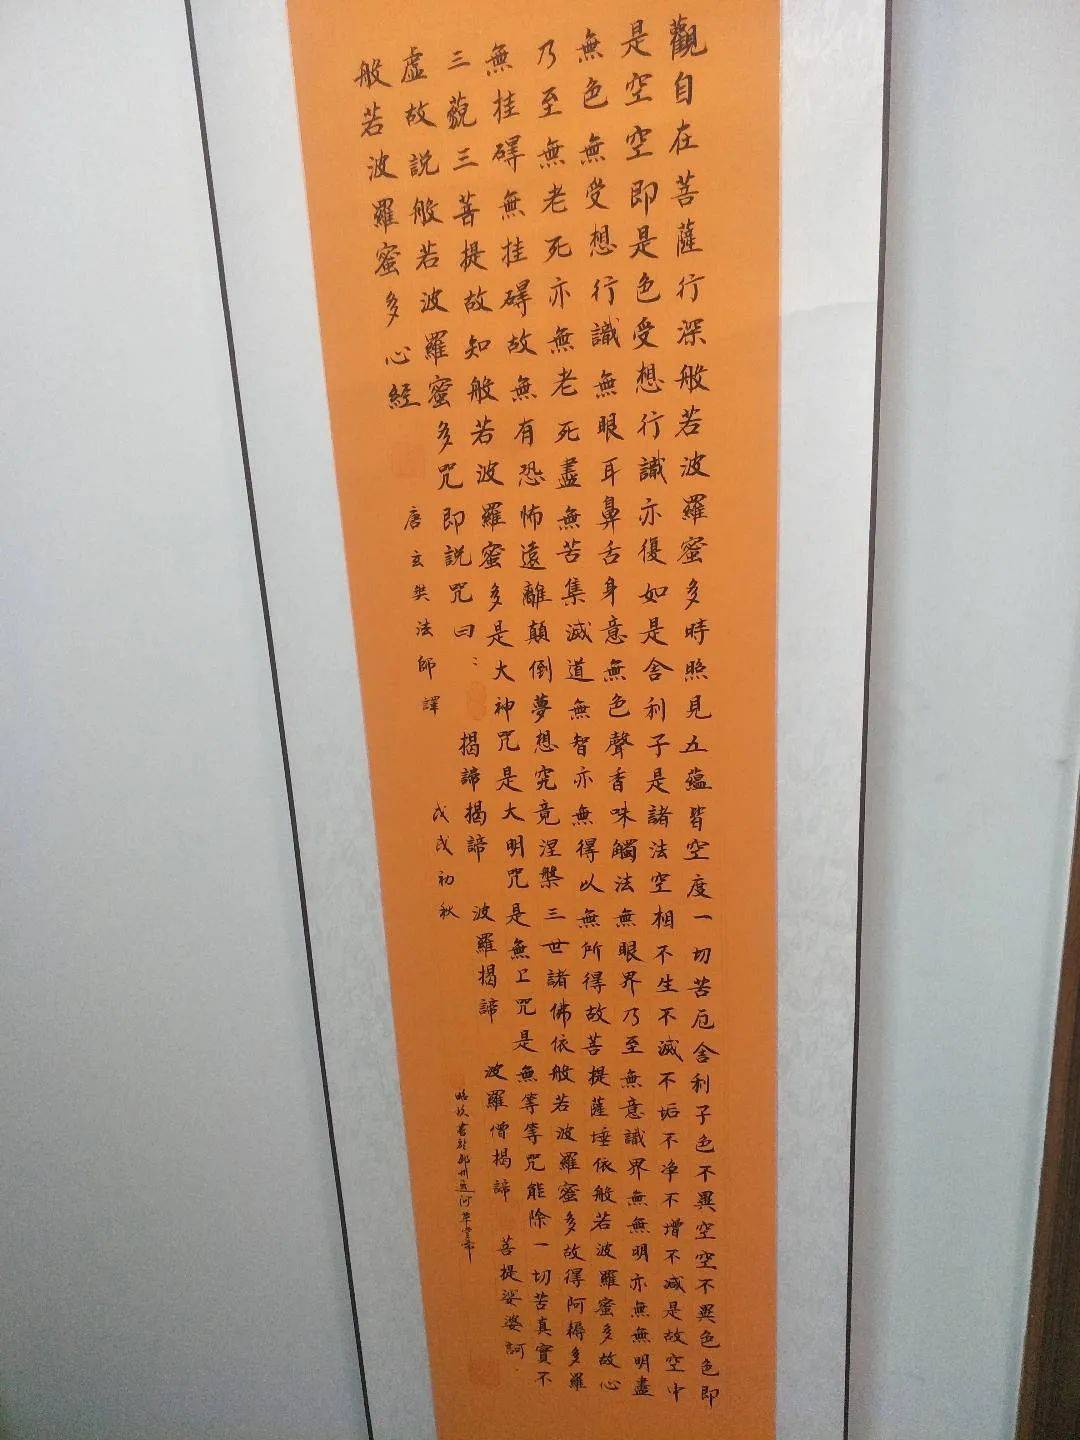 觀自在菩薩行深般若波羅蜜多時照見五蘊皆空度一切苦厄舍利子色不異空空不異色色即
是空空即是色受想行識亦復如是舍利子是諸法空相不生不滅不垢不净不增不减是故空中
無色無受想行識無眼耳鼻舌身意無色聲香味觸法無眼界乃至無意識界無無明亦無無明盡
乃至無老死亦無老死盡無苦集滅道無智亦無得以無所得故菩提薩埵依般若波羅蜜多故心
無挂碍無挂碍故無有恐怖遠離顛倒夢想究竟涅槃三世諸佛依般若波羅蜜多故得阿耨多羅
三藐三菩提故知般若波羅蜜多是大神咒是大明咒是無上咒是無等等咒能除一切苦真實不
虛故說般若波羅蜜多咒即說咒曰：揭諦揭諦 波羅揭諦 波羅僧揭諦 菩提娑婆訶
般若波羅蜜多心經
唐玄奘法師譯 戊戌初秋